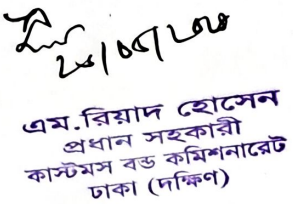 এম.রিয়াদ হোসেন
প্রধান সহকারী
কাস্টমস বন্ড কমিশনারেট
ঢাকা (দক্ষিণ)